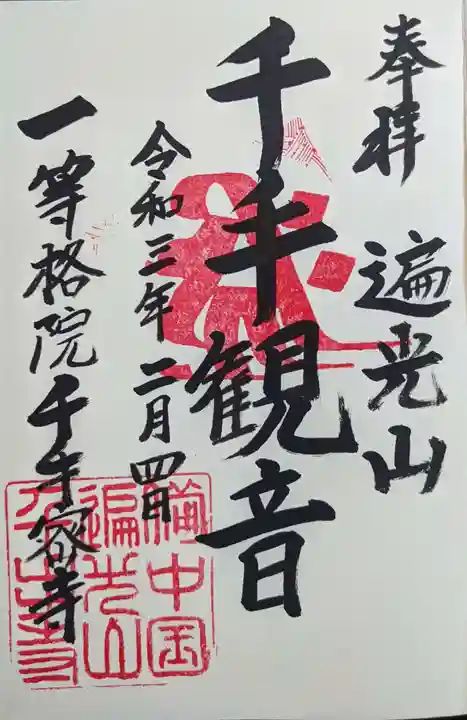 奉拝
遍光山
千手観音
令和三年二月四日
一等格院千手密寺
備中国
遍光山
千手寺